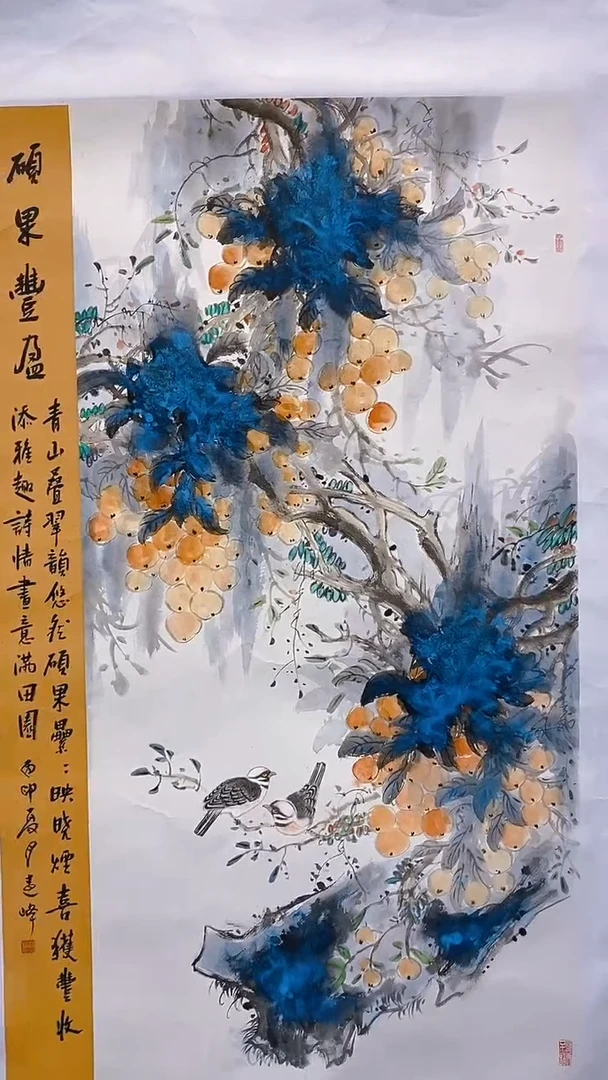 碩果豐盈
青山疊翠韻悠然碩果纍〻映曉煙喜獲豐收
添雅趣詩情畫意滿田園 丙申夏月 峰